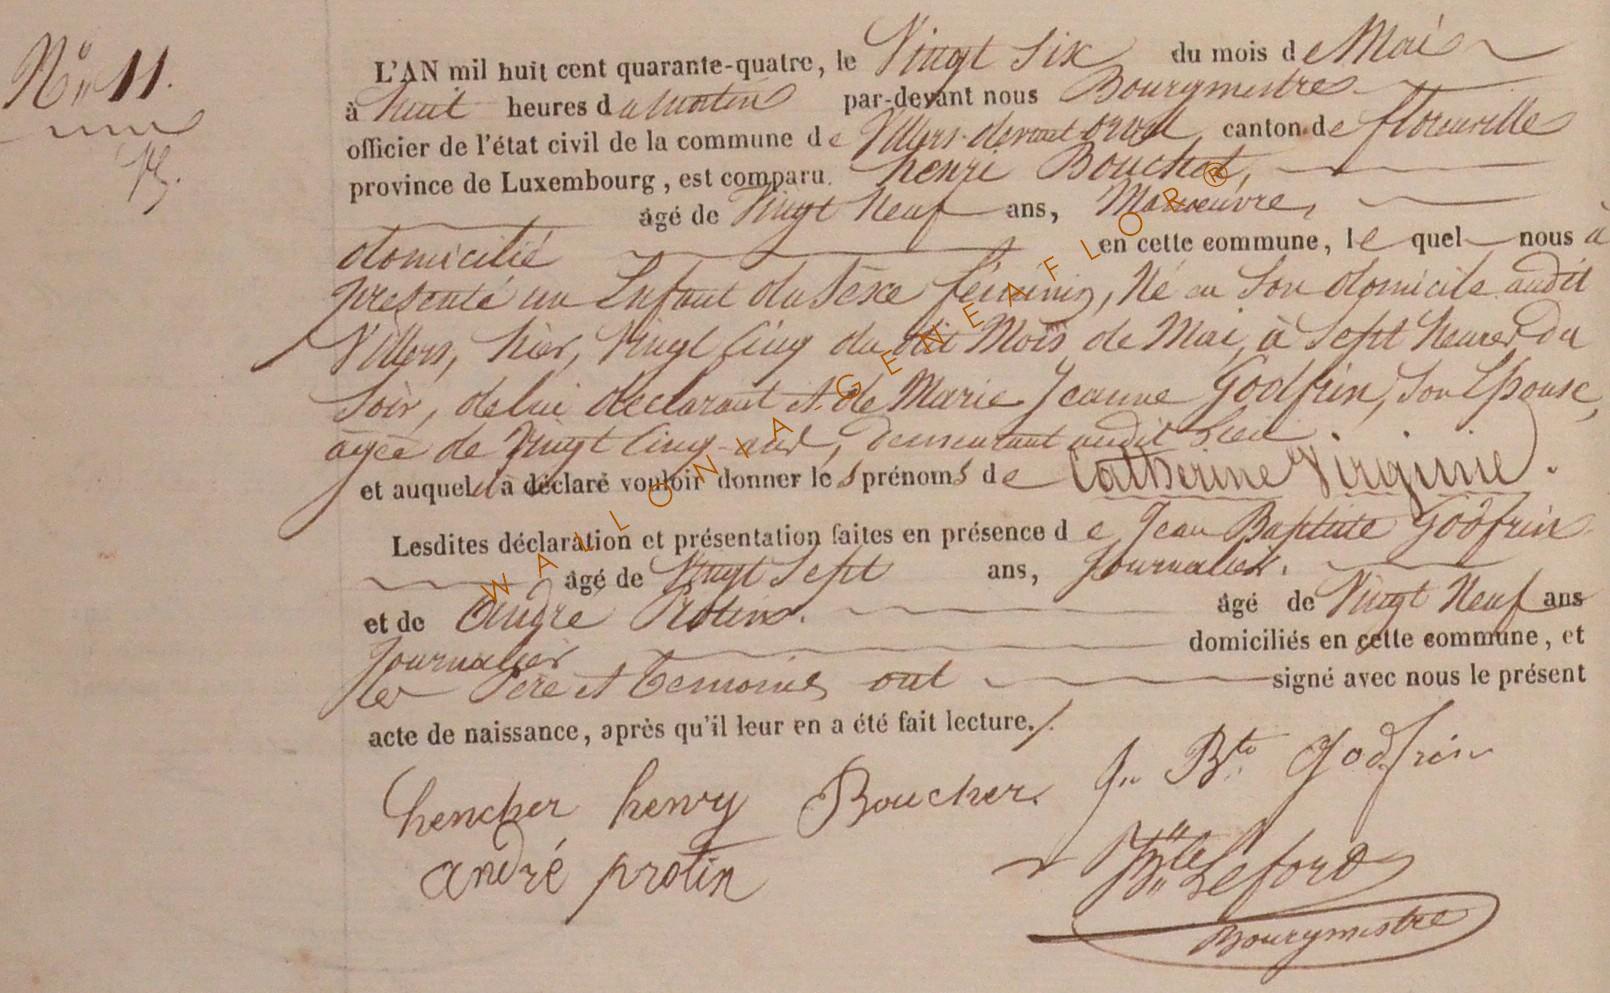 N° 11.
L'AN mil huit cent quarante-quatre, le Vingt Six du mois de Mai
à huit heures du Matin par-devant nous Bourgmestre
officier de l'état civil de la commune de Villers-devant orval, canton de florenville
province de Luxembourg, est comparu henri Bouchet,
âgé de Vingt Neuf ans, Manoeuvre,
domicilié en cette commune, lequel nous a
présenté un Enfant du Sexe féminin, Né en Son domicile audit
Villers, hier, Vingt Cinq du dit Mois de Mai, à Sept heures du
Soir, de lui déclarant et de Marie Jeanne Godfrin, Son Epouse,
agée de Vingt Cinq ans, demeurant audit Lieu
et auquel il a déclaré vouloir donner les prénoms de Catherine Virginie.
Lesdites déclaration et présentation faites en présence de Jean Baptiste Godfrin
âgé de Vingt Sept ans, Journalier.
et de André Protin. âgé de Vingt Neuf ans
Journalier domiciliés en cette commune, et
les Père et Temoins ont signé avec nous le présent
acte de naissance, après qu'il leur en a été fait lecture./.
henry Boucher Jn Bte Godfrin
andré protin
Bourgmestre
WALLONIA GENEAFLOR ®